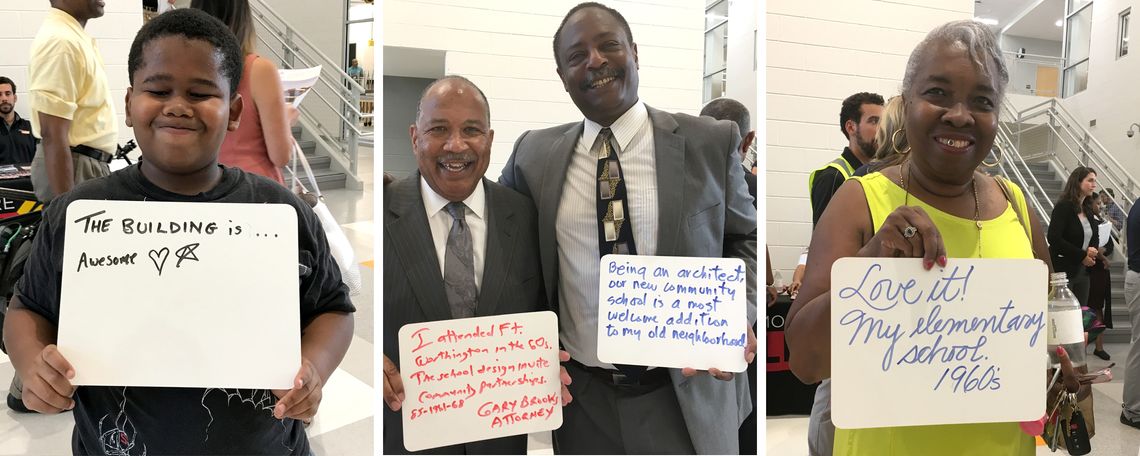 THE BUILDING is ...
Awesome
I attended Ft.
Worthington in the 60s.
The school design invite
Community partnerships.
GARY BROOKS
ATTORNEY
Being an architect,
our new community
school is a most
welcome addition
to my old neighborhood
Love it!
My elementary
school.
1960's